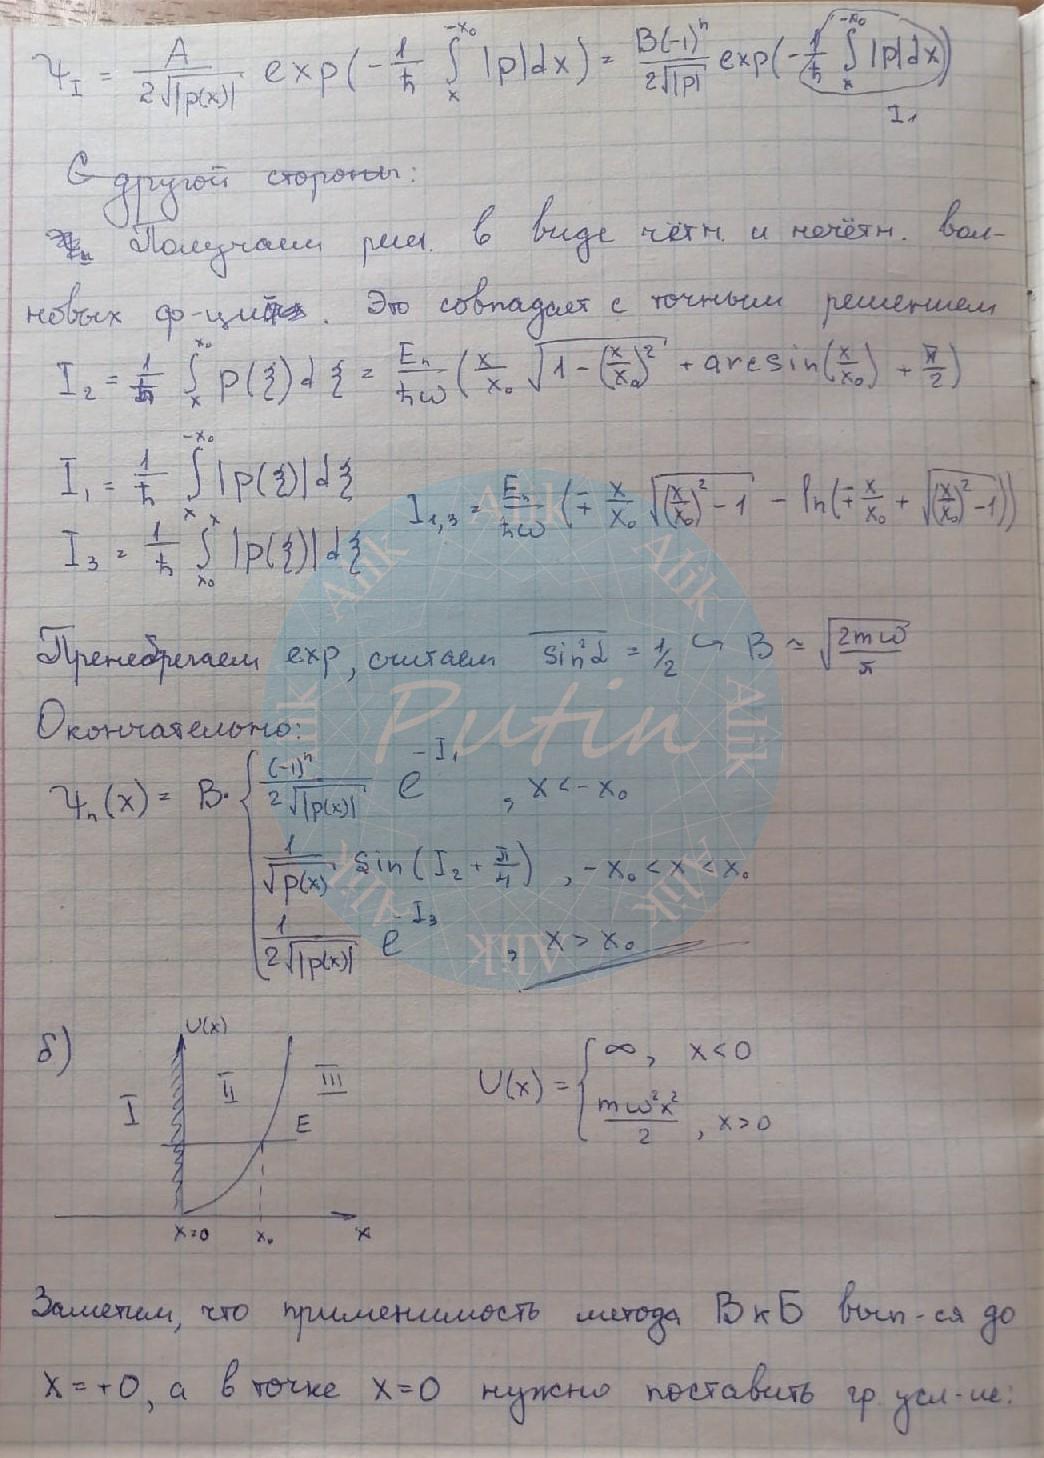 Ψ_I = A / (2√|p(x)|) exp(-1/ħ ∫_x^{-x₀} |p|dx) = B(-1)ⁿ / (2√|p|) exp(-1/ħ ∫_x^{-x₀} |p|dx)
I₁
С другой стороны:
Получаем реш. в виде чётн. и нечётн. вол-
новых ф-ций. Это совпадает с точным решением
I₂ = 1/ħ ∫_x^{x₀} p(ξ)dξ = Eₙ/ħω (x/x₀ √(1-(x/x₀)²) + arcsin(x/x₀) + π/2)
I₁ = 1/ħ ∫_x^{-x₀} |p(ξ)|dξ
I₁,₃ = Eₙ/ħω (∓ x/x₀ √((x/x₀)²-1) - ln(∓ x/x₀ + √((x/x₀)²-1)))
I₃ = 1/ħ ∫_{x₀}^x |p(ξ)|dξ
Пренебрегаем exp, считаем sin²α = 1/2 ↪ B ≃ √(2mω/π)
Окончательно:
Ψₙ(x) = B· { (-1)ⁿ / (2√|p(x)|) e^{-I₁}, x < -x₀
1/√p(x) sin(I₂ + π/4), -x₀ < x < x₀
1 / (2√|p(x)|) e^{-I₃}, x > x₀
Putin
Alik Alik Alik Alik Alik Alik Alik Alik
б)
U(x)
I II III
E
x=0 x₀ x
U(x) = { ∞, x<0
mω²x²/2, x>0
Заметим, что применимость метода ВКБ вып-ся до
x=+0, а в точке x=0 нужно поставить гр. усл-ие: